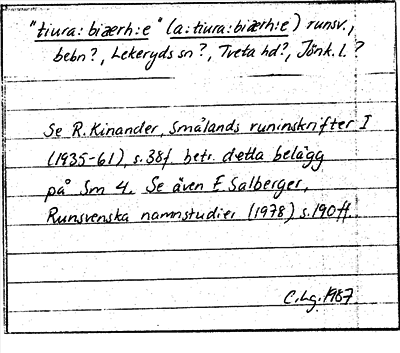 "tiura:biærh:e" (a:tiura:biærh:e) runsv.,
bebn?, Lekeryds sn?, Tveta hd?, Jönk. l.?
Se R. Kinander, Smålands runinskrifter I
(1935-61), s. 38f. betr. detta belägg
på Sm 4. Se även E Salberger,
Runsvenska namnstudier (1978) s. 190 ff.
C. Lg. 1987